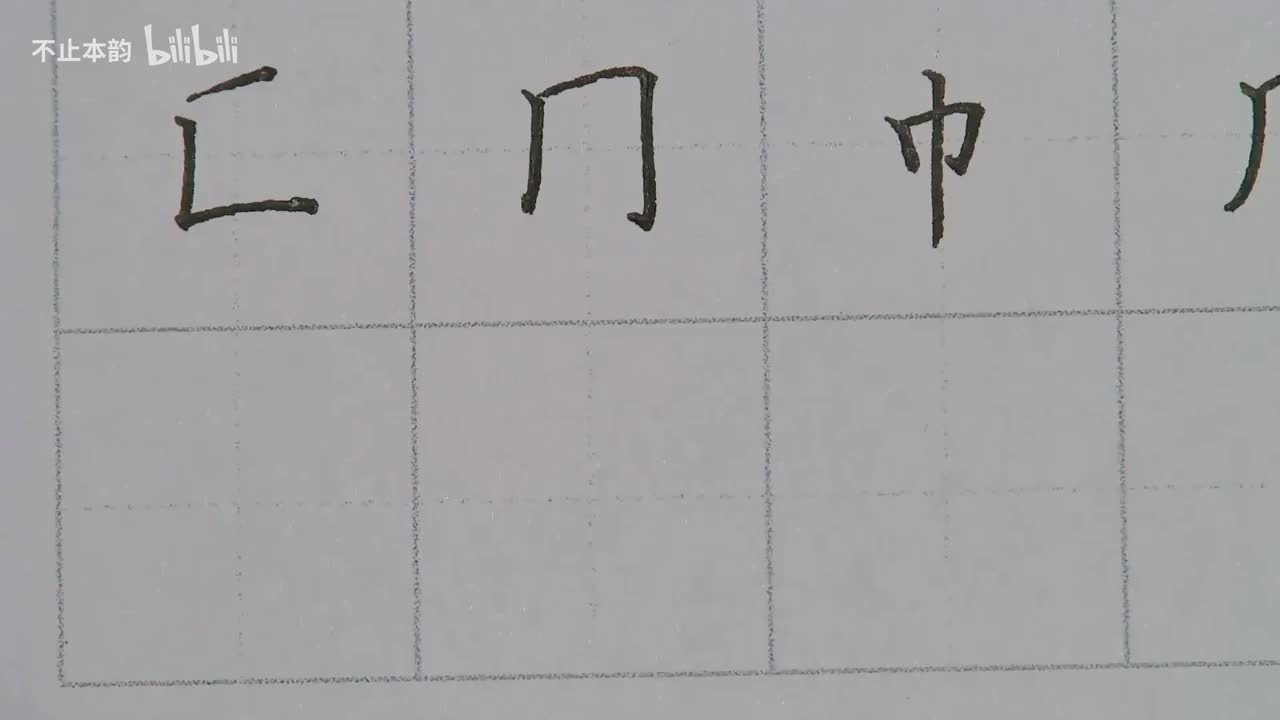 不止本韵 bilibili
匚 冂 巾